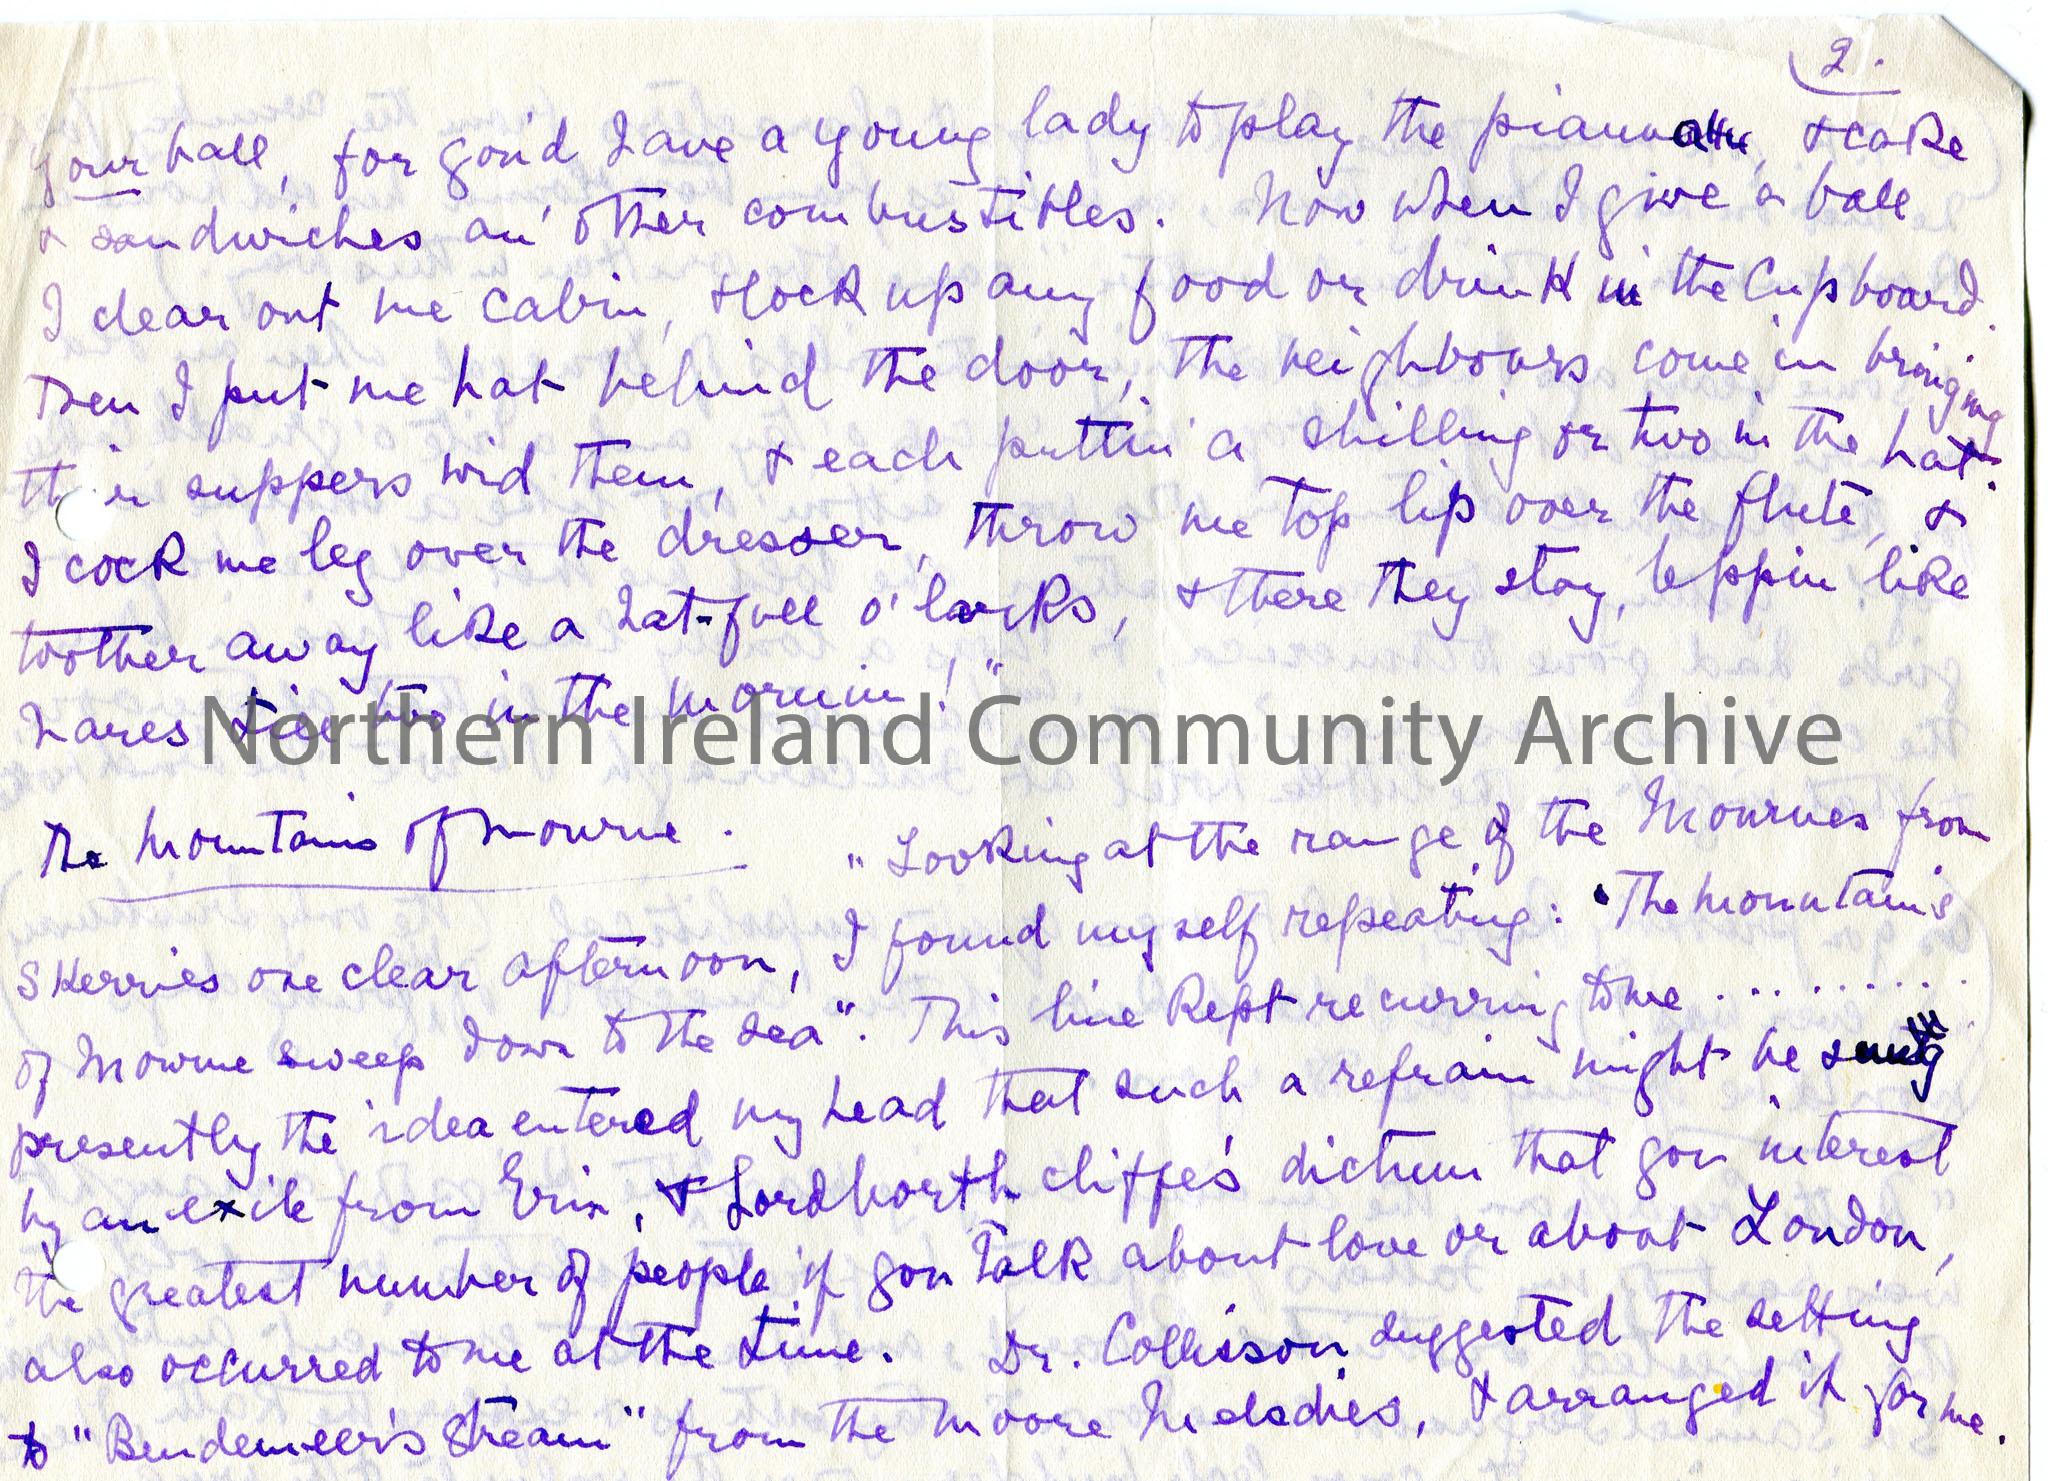 2.
your ball, for you'd have a young lady to play the piannah, & cake
& sandwiches an' other combustibles. Now when I give a ball
I clear out me cabin, & lock up any food or drink in the Cupboard.
Then I put me hat behind the door, the neighbours come in bringing
their suppers wid them, & each puttin' a shilling or two in the hat.
I cock me leg over the dresser, throw me top lip over the flute, &
toother away like a hat-full o' larks, & there they stay, leppin like
hares till two in the mornin!"
Northern Ireland Community Archive
The Mountains of Mourne. "Looking at the range of the Mournes from
Skerries one clear afternoon, I found myself repeating: 'The Mountains
of Mourne sweep down to the sea". This line kept recurring to me ..........
presently the idea entered my head that such a refrain might be sung
by an exile from Erin, & Lord Northcliffe's dictum that you interest
the greatest number of people if you talk about love or about London,
also occurred to me at the time. Dr. Collisson suggested the setting
to "Bendemeer's Stream" from the Moore Melodies, & arranged it for me.